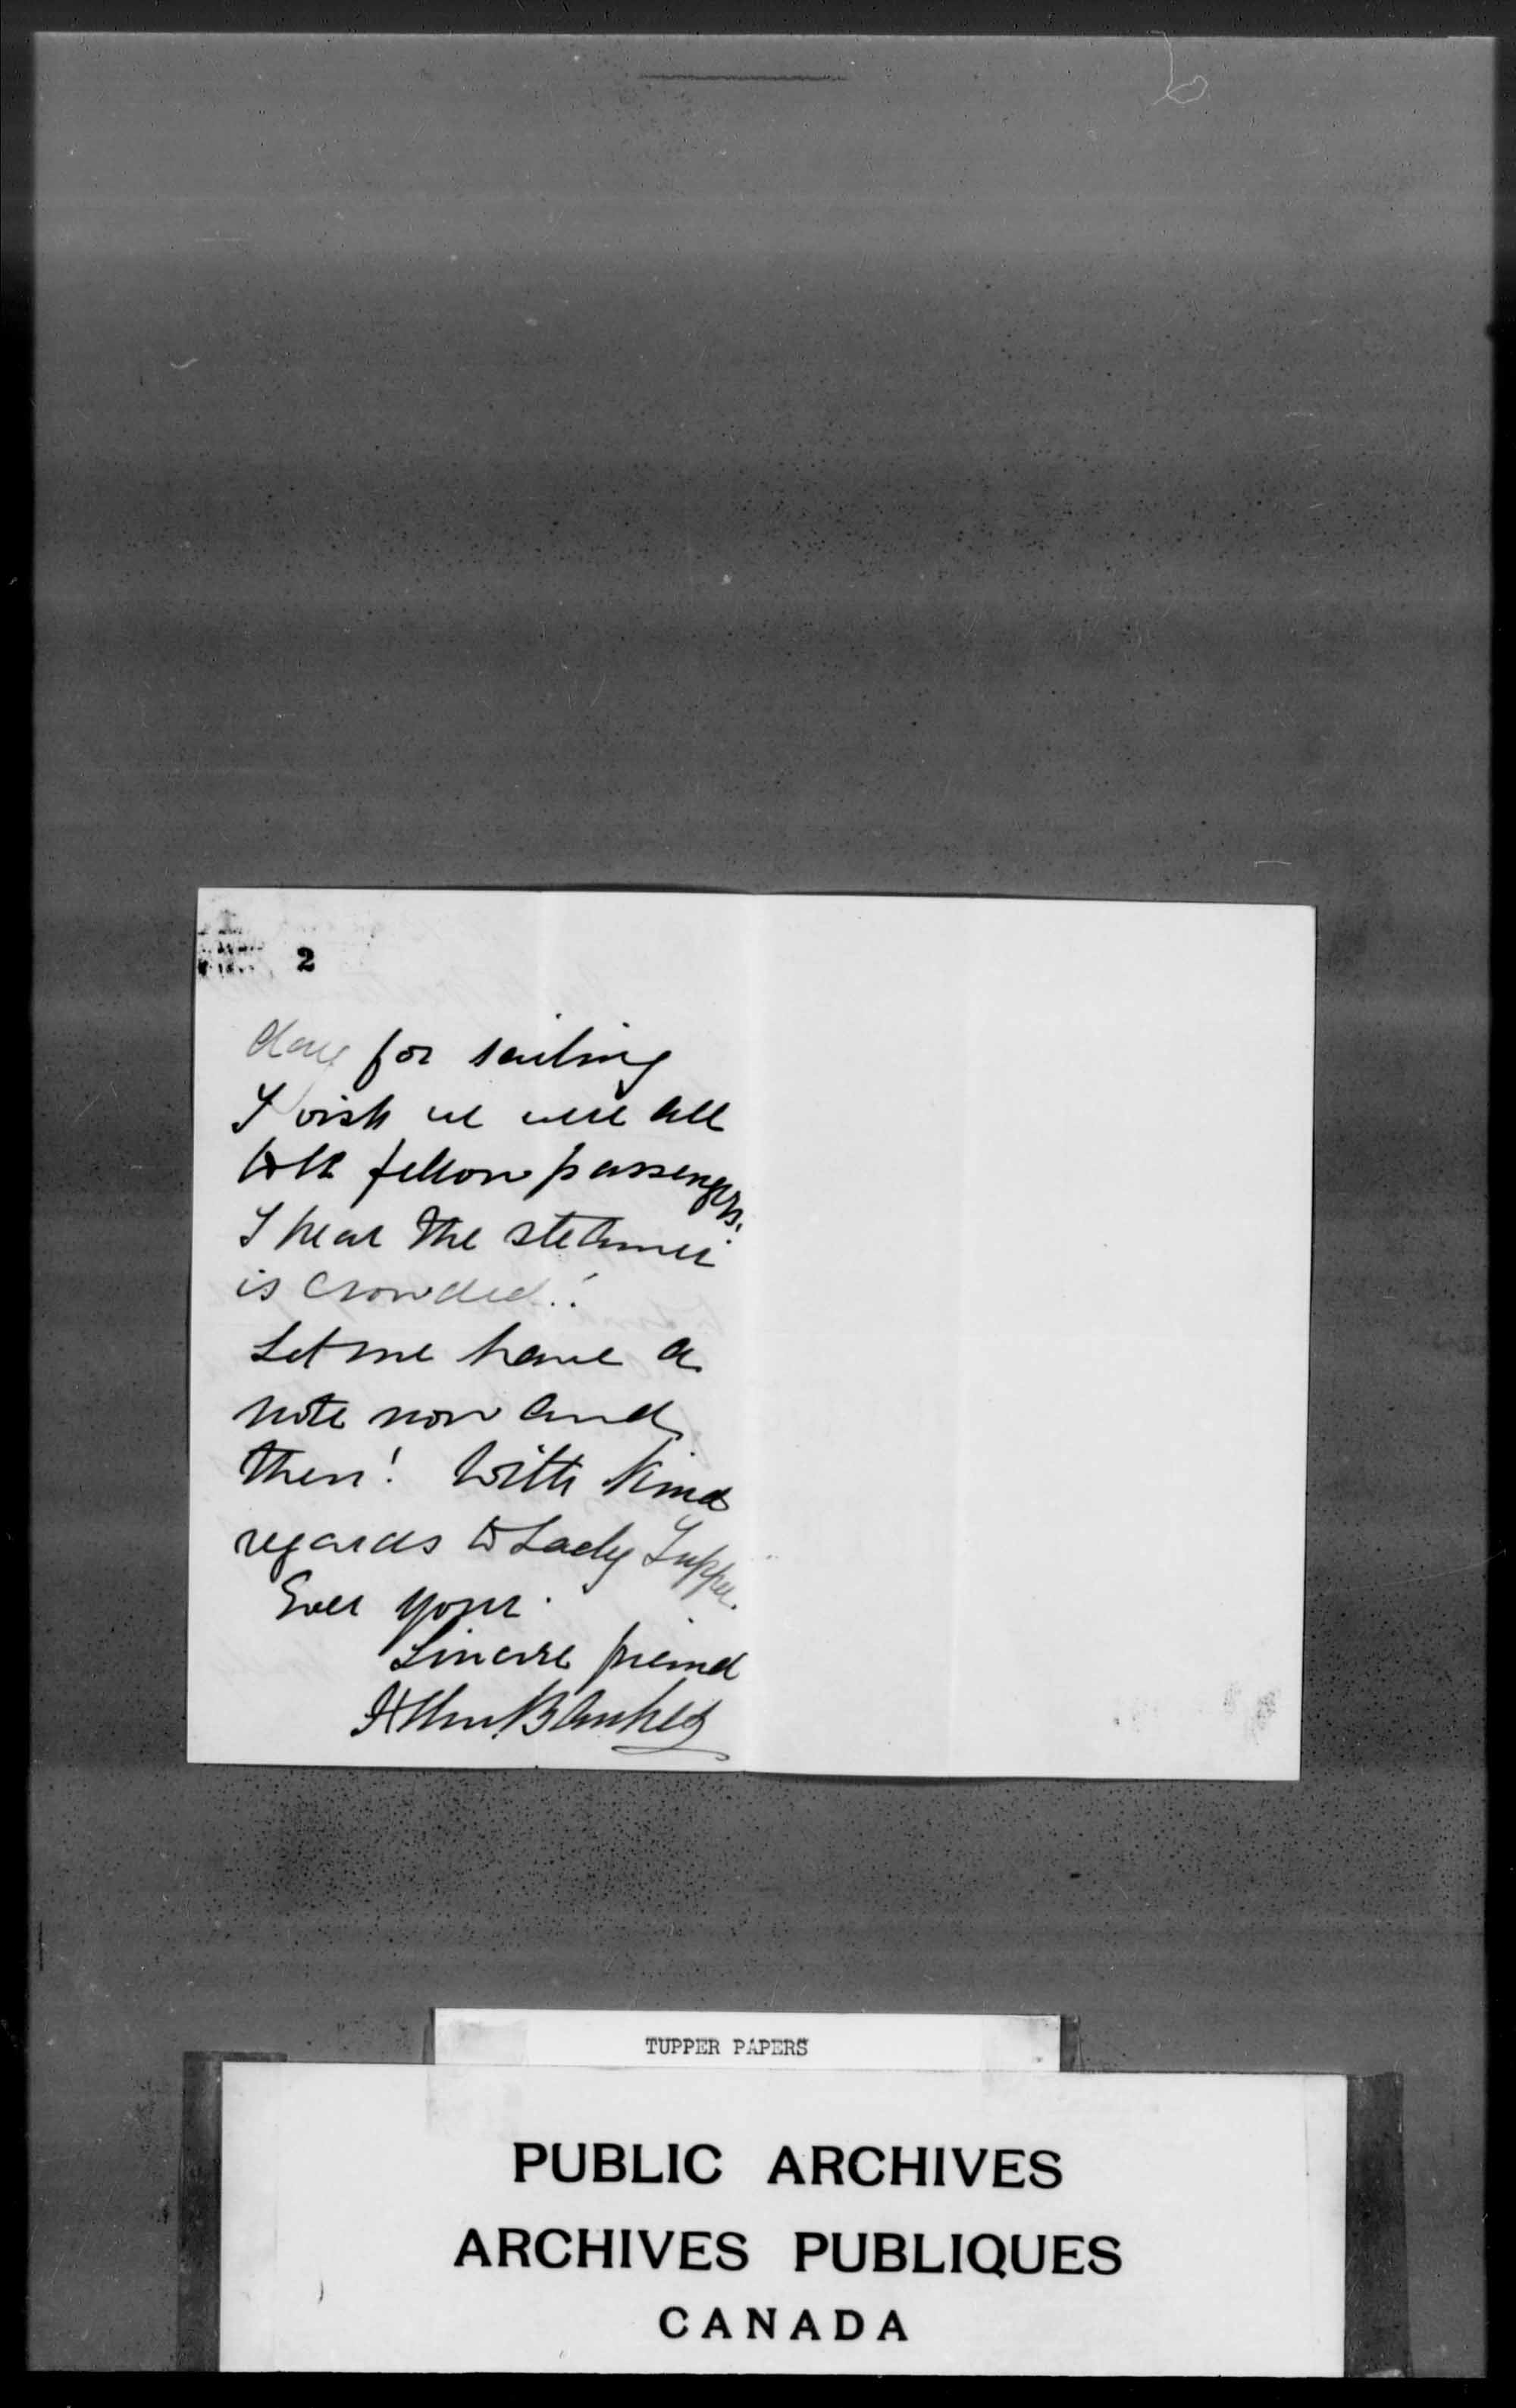 2
day for sailing
I wish we were all
to be fellow passengers.
I hear the steamer
is crowded!
Let me have a
note now and
then! With kind
regards to Lady Tupper.
Ever your
Sincere friend
TUPPER PAPERS
PUBLIC ARCHIVES
ARCHIVES PUBLIQUES
CANADA